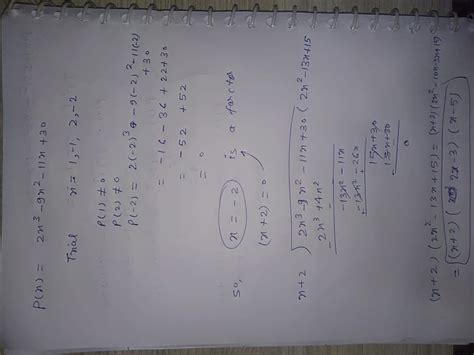 P(x) = 2x³-9x²-11x+30
Trial x = 1, -1, 2, -2
P(1) ≠ 0
P(2) ≠ 0
P(-2) = 2(-2)³ - 9(-2)² - 11(-2) + 30
= -16 - 36 + 22 + 30
= -52 + 52
= 0
So, x = -2 is a factor
(x+2) = 0
x+2 ) 2x³-9x² - 11x + 30 ( 2x²-13x+15
2x³ + 4x²
-13x² - 11x
-13x² - 26x
15x + 30
15x + 30
0
(x+2) (2x² - 13x + 15) = (x+2) (2x² - 10x - 3x + 15)
= (x+2) (2x - 3) (x - 5)